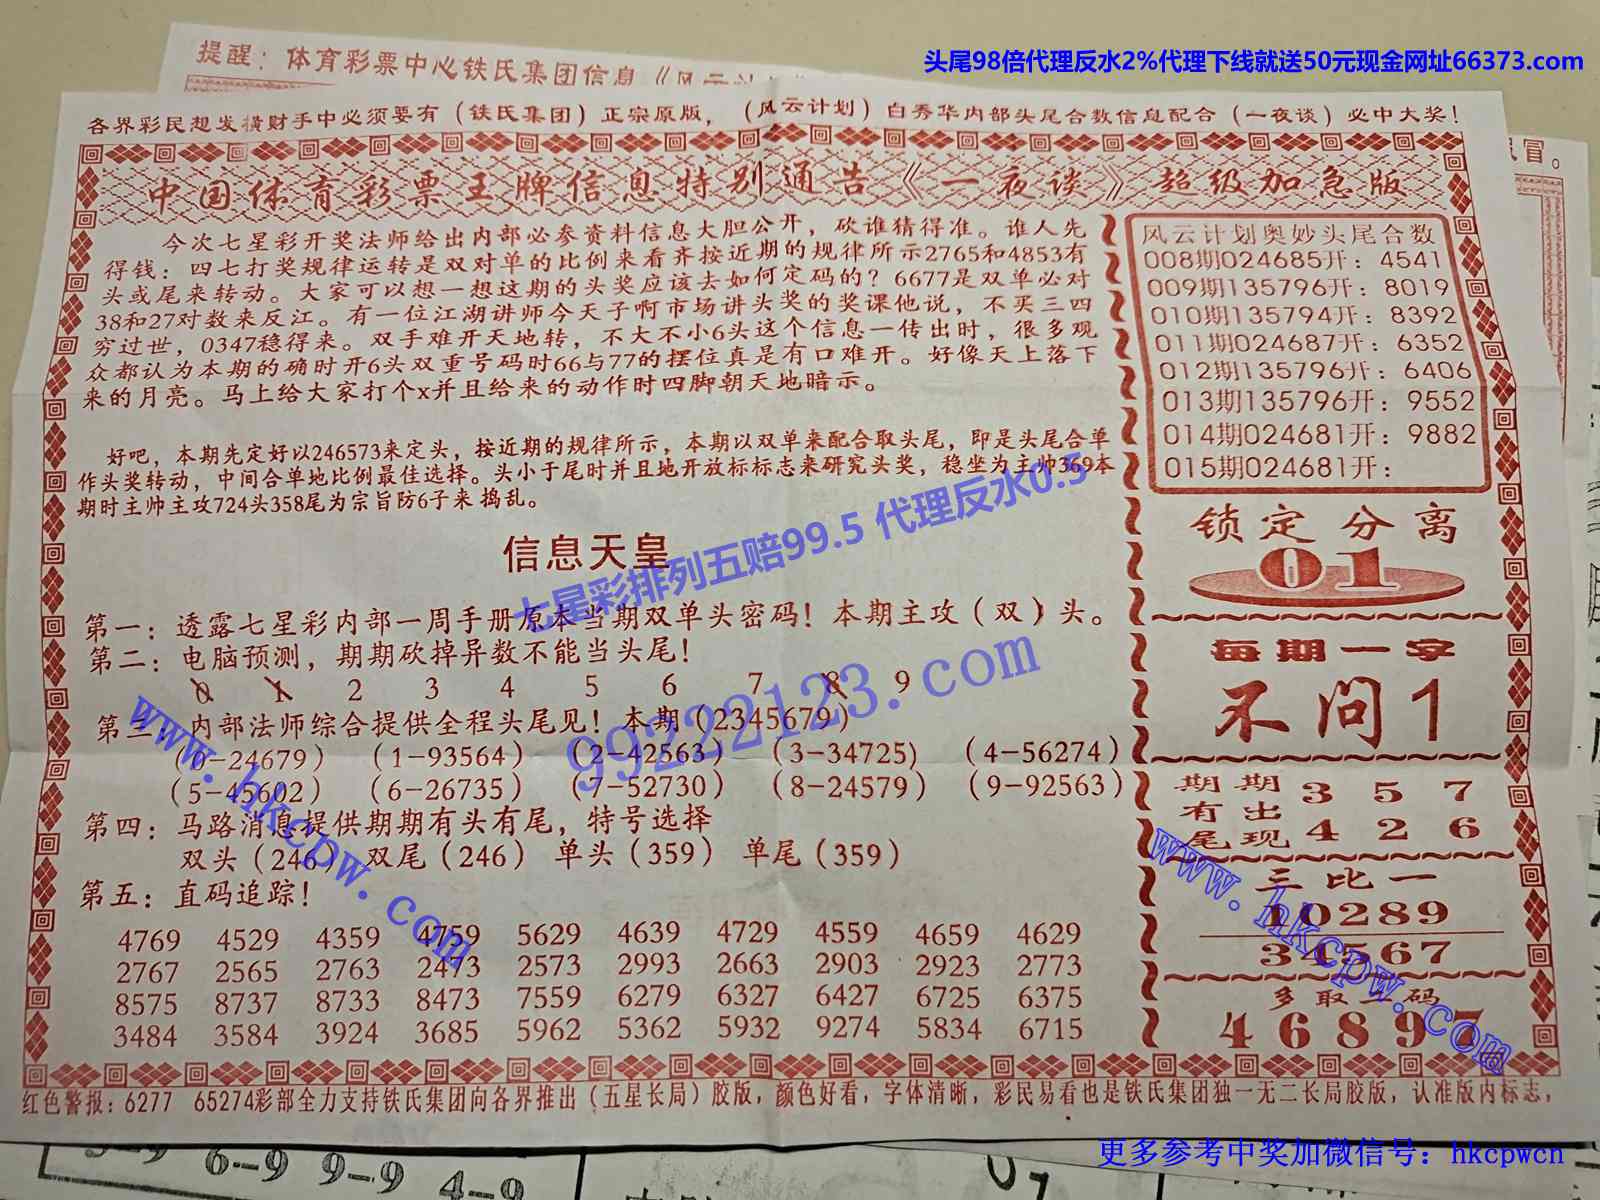 头尾98倍代理反水2%代理下线就送50元现金网址66373.com
提醒：体育彩票中心铁氏集团信息《风云计
各界彩民想发横财手中必须要有（铁氏集团）正宗原版，（风云计划）白秀华内部头尾合数信息配合（一夜谈）必中大奖！
冒。
中国体育彩票王牌信息特别通告《一夜谈》超级加急版
今次七星彩开奖法师给出内部必参资料信息大胆公开，砍谁猜得准。谁人先
得钱：四七打奖规律运转是双对单的比例来看齐按近期的规律所示2765和4853有
头或尾来转动。大家可以想一想这期的头奖应该去如何定码的？6677是双单必对
38和27对数来反江。有一位江湖讲师今天子啊市场讲头奖的奖课他说，不买三四
穷过世，0347稳得来。双手难开天地转，不大不小6头这个信息一传出时，很多观
众都认为本期的确时开6头双重号码时66与77的摆位真是有口难开。好像天上落下
来的月亮。马上给大家打个x并且给来的动作时四脚朝天地暗示。
好吧，本期先定好以246573来定头，按近期的规律所示，本期以双单来配合取头尾，即是头尾合单
作头奖转动，中间合单地比例最佳选择。头小于尾时并且地开放标标志来研究头奖，稳坐为主帅369本
期时主帅主攻724头358尾为宗旨防6子来 捣乱。
七星彩排列五赔99.5 代理反水0.5
信息天皇
第一：透露七星彩内部一周手册原本当期双单头密码！本期主攻（双）头。
第二：电脑预测，期期砍掉异数不能当头尾！
0 1 2 3 4 5 6 7 8 9
99222123.com
www.hkcpw.com
第三：内部法师综合提供全程头尾见！本期（2345679）
（0-24679） （1-93564） （2-42563） （3-34725） （4-56274）
（5-45602） （6-26735） （7-52730） （8-24579） （9-92563）
第四：马路消息提供期期有头有尾，特号选择
双头（246） 双尾（246） 单头（359） 单尾（359）
第五：直码追踪！
4769 4529 4359 4759 5629 4639 4729 4559 4659 4629
2767 2565 2763 2473 2573 2993 2663 2903 2923 2773
8575 8737 8733 8473 7559 6279 6327 6427 6725 6375
3484 3584 3924 3685 5962 5362 5932 9274 5834 6715
风云计划奥妙头尾合数
008期024685开：4541
009期135796开：8019
010期135794开：8392
011期024687开：6352
012期135796开：6406
013期135796开：9552
014期024681开：9882
015期024681开：
锁定分离
01
每期一字
不问1
期期 3 5 7
有出
尾现 4 2 6
www.hkcpw.com
三比一
10289
34567
多取一码
46897
红色警报：6277 65274彩部全力支持铁氏集团向各界推出（五星长局）胶版，颜色好看，字体清晰，彩民易看也是铁氏集团独一无二长局胶版，认准版内标志，
更多参考中奖加微信号：hkcpwcn
6-9 9-9 4-9